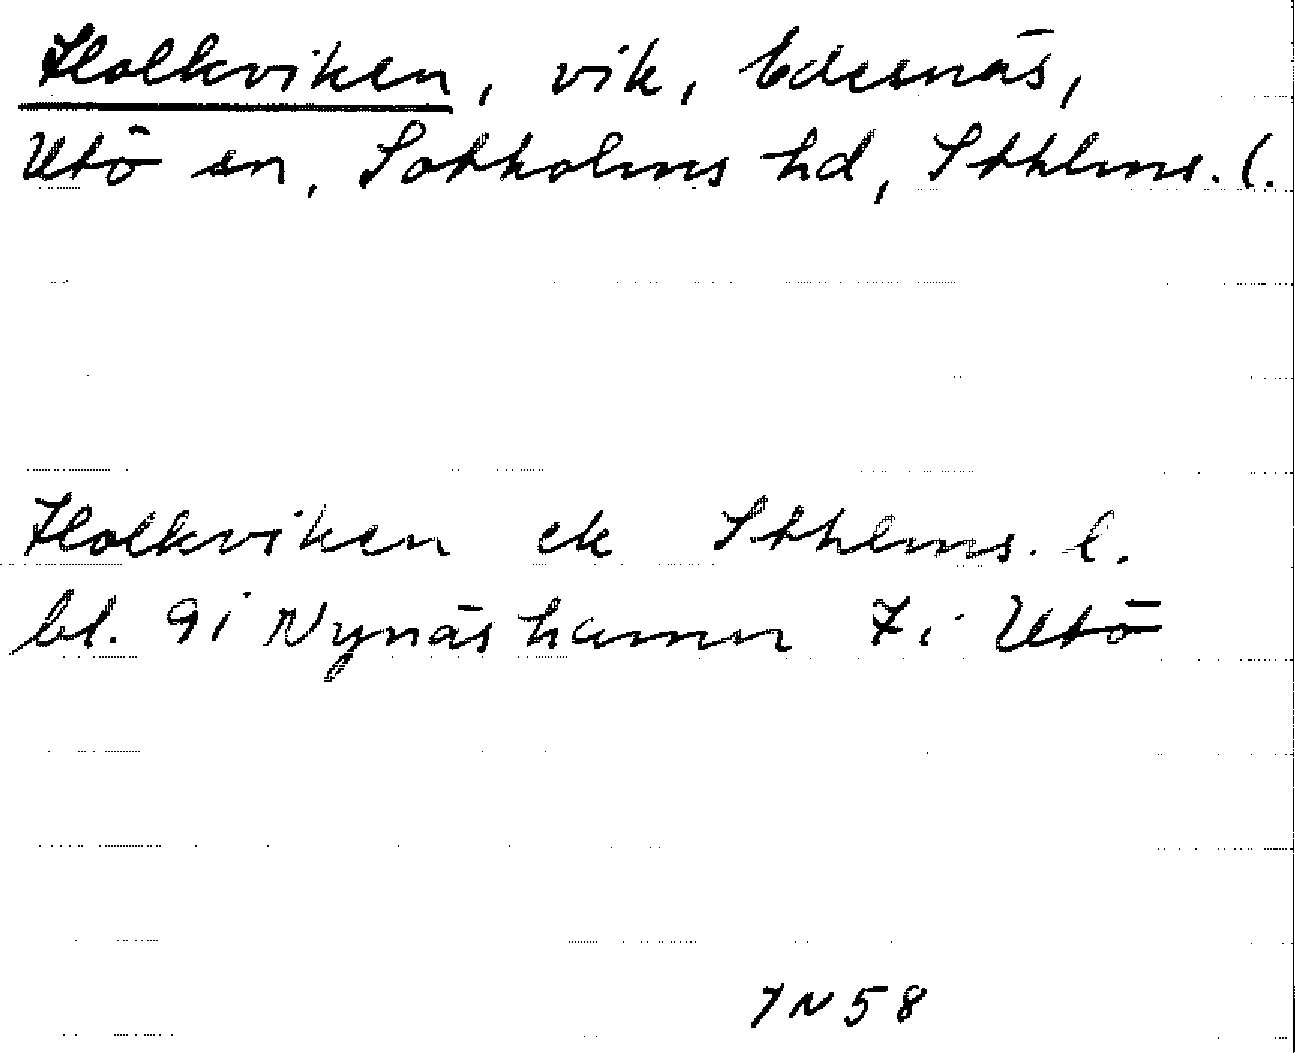 Holkviken, vik, Edesnäs,
Utö sn, Sotholms hd, Sthlms. l.
Holkviken ek Sthlms. l.
bl. 91 Nynäshamn 7i Utö
IN 58